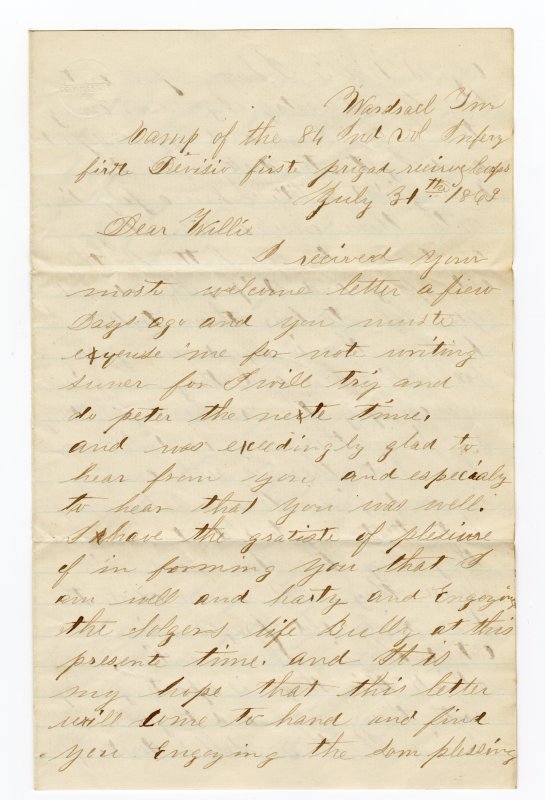 Wardsvell Tnn
Camp of the 84 Ind Vol Infery
firste Devisio firste prigad recirve Corps
July 31th 1863
Dear Willie
I recived your
moste welcome letter a fiew
Days ago and you muste
exquse me for note writing
suner for I will trij and
do peter the nexte time.
and was exceedingly glad to
hear from you and especialy
to hear that you was well.
I have the gratiste of plesiure
of in forming you that I
am well and harty and Engoying
the Solgers life Bully at this
presente time. and It is
my hope that this letter
will come to hand and find
you Engoying the Som plessing